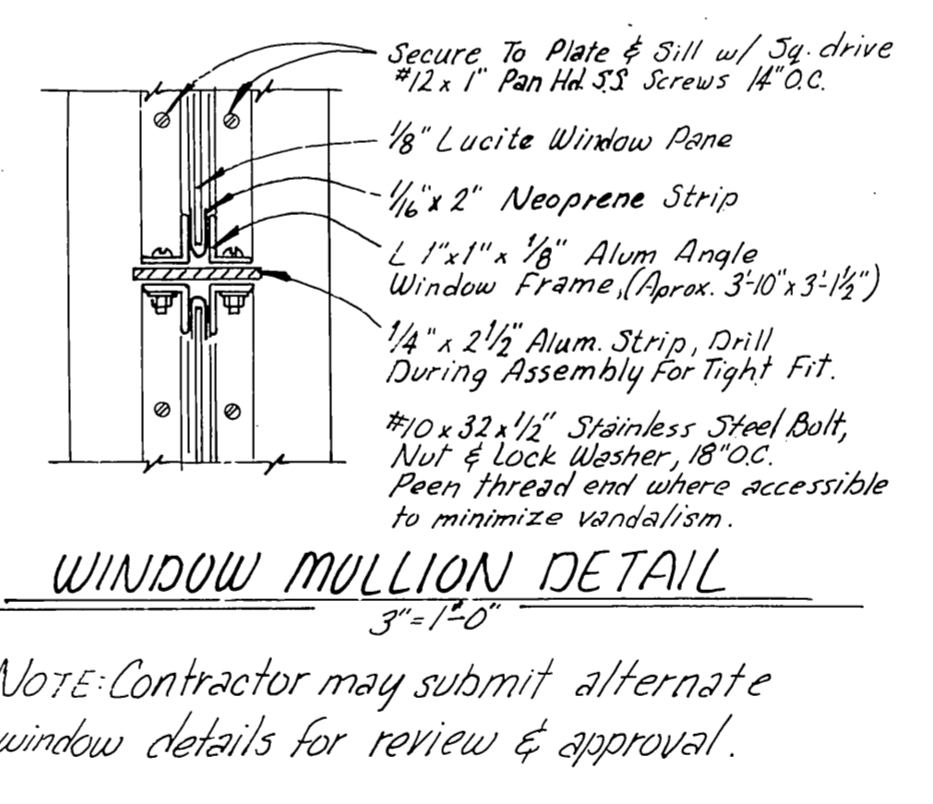 Secure To Plate & Sill w/ Sq. drive
#12 x 1" Pan Hd. S.S. Screws 14" O.C.
1/8" Lucite Window Pane
1/16" x 2" Neoprene Strip
L 1" x 1" x 1/8" Alum Angle
Window Frame, (Aprox. 3'-10" x 3'-1 1/2")
1/4" x 2 1/2" Alum. Strip, Drill
During Assembly For Tight Fit.
#10 x 32 x 1/2" Stainless Steel Bolt,
Nut & Lock Washer, 18" O.C.
Peen thread end where accessible
to minimize vandalism.
WINDOW MULLION DETAIL
3" = 1'-0"
NOTE: Contractor may submit alternate
window details for review & approval.